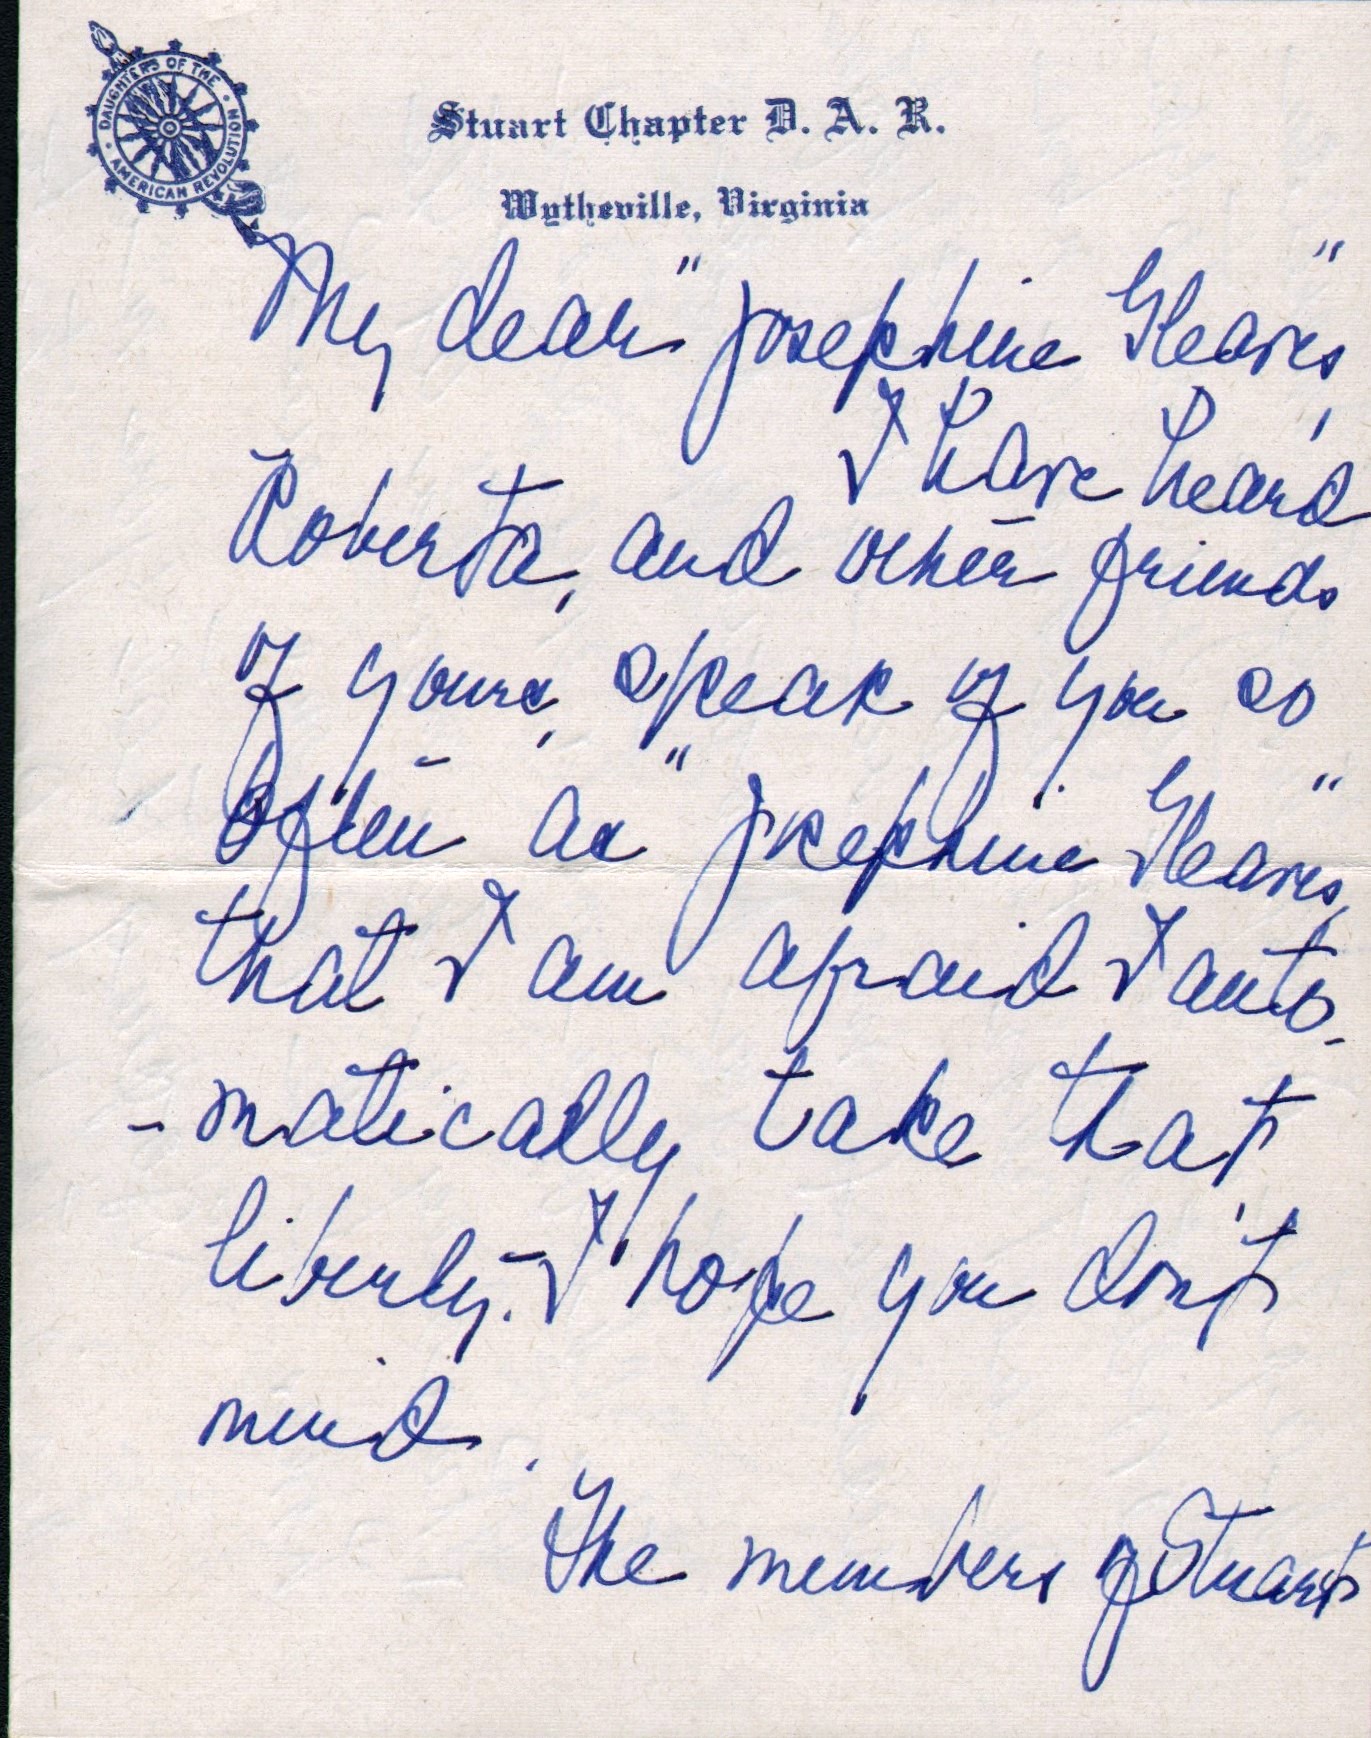 DAUGHTERS OF THE AMERICAN REVOLUTION
Stuart Chapter D. A. R.
Wytheville, Virginia
My dear "Josephine Gleaves",
I have heard
Roberta, and other friends
of yours, speak of you so
often as "Josephine Gleaves,"
that I am afraid I auto-
-matically take that
liberty. - I hope you don't
mind.
The members of Stuart